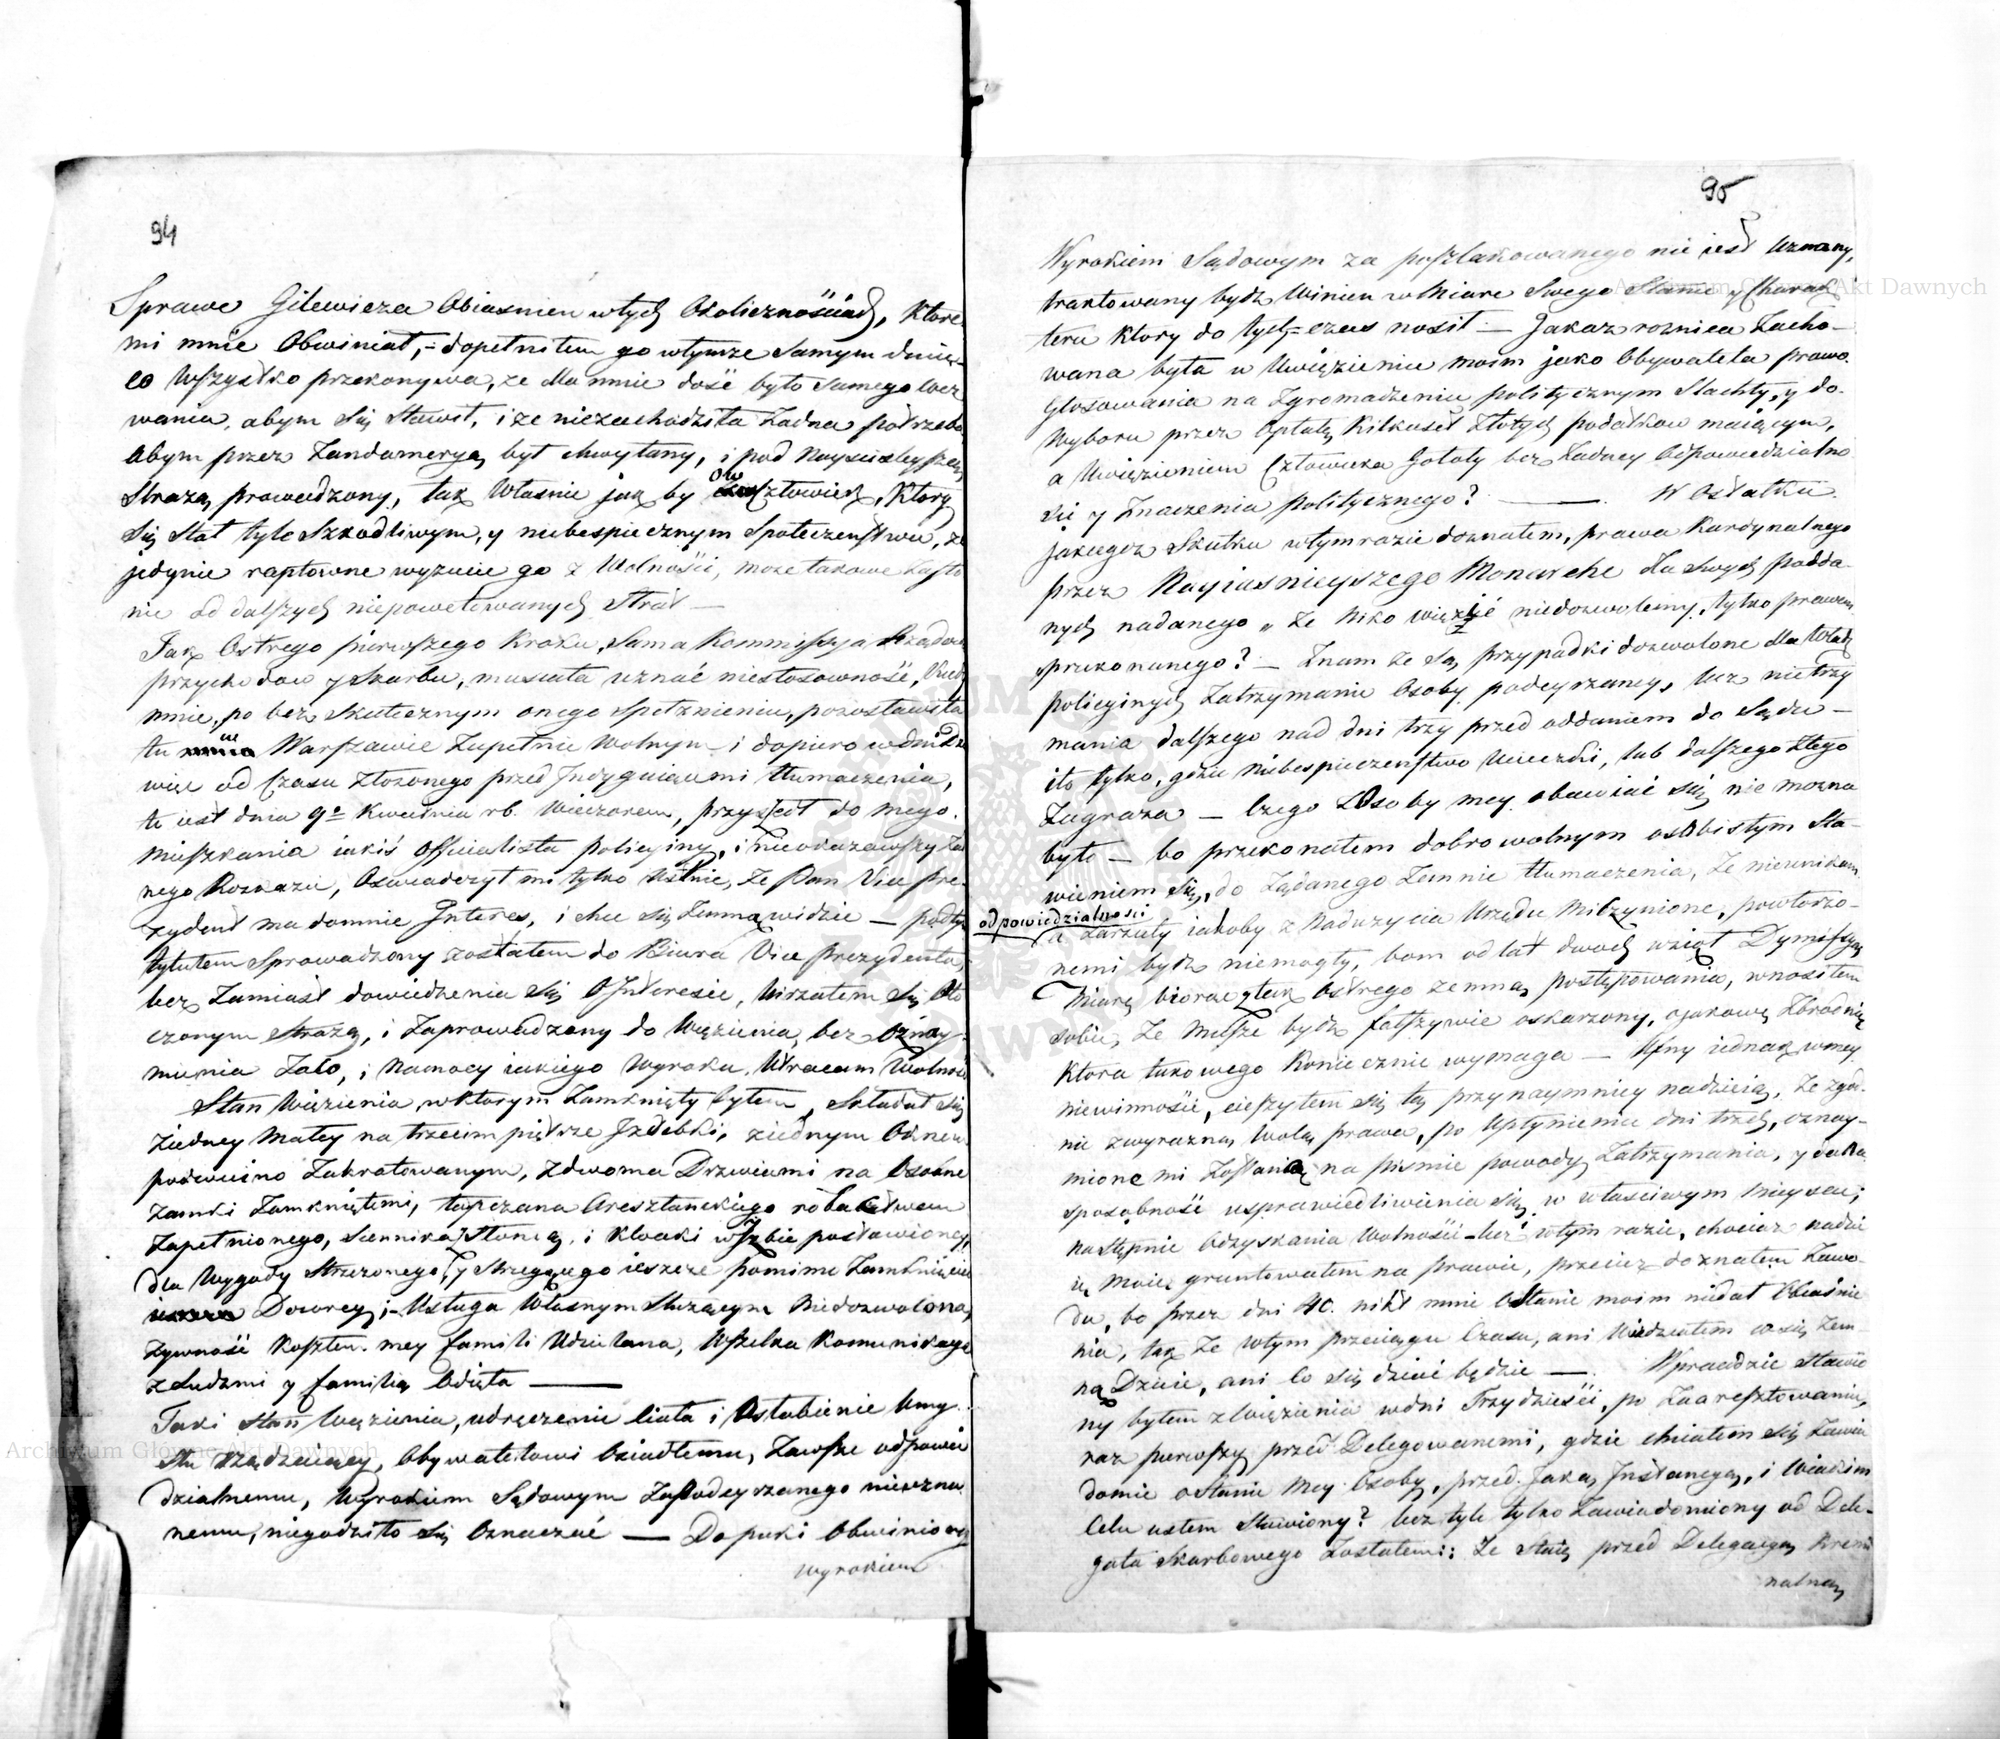 94
Sprawę Gilewicza Obiasnien wtych Okolicznościach, które-
mi mnie Obwiniał, = dopełniłem go wtymże Samym dniu,
co Wszystko przekonywa, że dla mnie dość było Samego wez
wania, abym się Stawił, i że niezachodziła Żadna potrzeba
Abym przez Żandameryą był chwytany, i pod Nayściśleyszą
Strażą prowadzony, tak Własnie jak by ow Człowiek, Ktory
się Stał tyle Szkodliwym, y niebespiecznym Społeczeństwu, że
jedynie raptowne wyzucie go z Wolności, może takowe zasło
nić od dalszych niepowetowanych Strat —
Tak Ostrego pierwszego Kroku, Sama Kommissya Rządowa
przychodow y Skarbu, musiała uznać niestosowność, Kiedy
mnie, po bez Skutecznym onego Spełznieniu, pozostawiła
tu w Warszawie Zupełnie Wolnym — i dopiero w dni
więc od Czasu złożonego przed Indygniącemi tłumaczenia,
to iest dnia 9º Kwietnia rb. Wieczorem, przyszedł do mego
Mieszkania iakiś Officialista policyiny, i nieokazawszy Żad
nego Rozkazu, Oświadczył mi tylko Ustnie, że Pan Vice Pre-
zydent ma domnie Interes, i chce się zemną widzieć — podtym
tytułem Sprowadzony zostałem do Biura Vice Prezydenta,
lecz Zamiast dowiedzenia się O Interesie, Uirzałem się Oto
czonym Strażą, i Zaprowadzony do Więzienia, bez Oznay-
mienia Zaco, i Namocy iakiego Wyroku, Utracam Wolność
Stan Więzienia, wktorym Zamknięty byłem, Składał się
ziedney Małey na trzecim piętrze Izdebki, ziednym Oknem
podwoino Zakratowanym, Zdwoma Drzwiami na Osobne
Zamki Zamkniętemi, tapczana Aresztanckiego robactwem
Zapełnionego, Siennika z Słomą, i Kloaki w Izbie postawioney
dla Wygody Strzeżonego, y Strzegącego ieszcze pomimo Zamknięcia
Dozorcy; — Usługa Własnym Służącym Niedozwolona,
Żywność Kosztem mey familii Udzielana, Wszelka Komunikacya
z Ludzmi y familią Odięta —
Taki Stan Więzienia, udręczenie Ciała i Osłabienie Umy-
słu rządzącey, Obywatelowi Osiadłemu, Zawsze odpowie
dzialnemu, Wyrokiem Sądowym Zapodeyrzanego nieuzna
nemu, niegodziło się Oznaczać — Dopoki Obwiniony
wyrokiem
95
Wyrokiem Sądowym za poszlakowanego nie iest Uznany,
traktowany bydź Winien w Miarę Swego Stanu y Charak
teru ktory do tych = czas nosił — Jakaż roznica Zacho-
wana była w Uwięzieniu moim jako Obywatela prawo
Głosowania na Zgromadzeniu politycznym Slachty, y do
Wyboru przez Opłatę Kilkuset Złotych podatkow maiącym,
a Uwięzieniem Człowieka Gołoty bez Żadney Odpowiedzialno
ści y Znaczenia politycznego? — W Ostatku
jakiegoż Skutku wtym razie doznałem, prawa Kardynalnego
przez Nayiasnieyszego Monarchę dla Swych podda-
nych nadanego „ że Niko więzić niedozwolemy, tylko prawem
przekonanego? — Znam że są, przypadki dozwolone dla Władz
policyinych Zatrzymanie Osoby podeyrzaney, lecz nie trzy
mania dalszego nad dni trzy przed oddaniem do Sądu —
i to tylko, gdzie Niebespieczeństwo Ucieczki, lub dalszego złego
Zagraża — Czego z Osoby mey obawiać się nie można
było — bo przekonałem dobrowolnym osobistym Sta-
wieniem się, do Żądanego Zemnie tłumaczenia, że nieunikam
odpowiedzialności
a Zarzuty iakoby z Nadużycia Urzędu Mi Czynione, powtorzo-
nemi bydź niemogły, bom od lat dwoch wziął Dymissyą
Miarę biorąc ztak Ostrego zemną postępowania, wnosiłem
sobie, że Muszę bydź fałszywie oskarżony, o jakową Zbrodnię
Ktora takowego Koniecznie wymaga — Ufny iednak w mey
niewinności, cieszyłem się tą przynaymniey nadzieią, że zgod-
nie zwyraźną Wolą prawa, po Upłynieniu dni trzech, oznay-
mione mi Zostaną na pismie powody Zatrzymania, y dana
sposobność usprawiedliwienia się w właściwym Mieyscu;
następnie Odzyskania Wolności — lecz w tym razie, chociaż nadzie
ię Moię gruntowałem na prawie, przecież doznałem Zawo-
du, bo przez dni 40. nikt mnie Ostanie moim niedał Obiaśnie
nia, tak że wtym przeciągu Czasu, ani Wiedziałem co się zem
ną Dzieie, ani Co się dziać będzie — Wprawdzie Stawio
ny byłem z Więzienia wdni Trzydzieści, po Zaaresztowaniu,
raz pierwszy przed Delegowanemi, gdzie chciałem się Zawia
domić oStanie Mey Osoby, przed Jaką Instancyą, i Wiakim
Celu iestem Stawiony? lecz tyle tylko Zawiadomiony od Dele-
gata Skarbowego Zostałem: że Staię przed Delegacyą Krymi
nalną